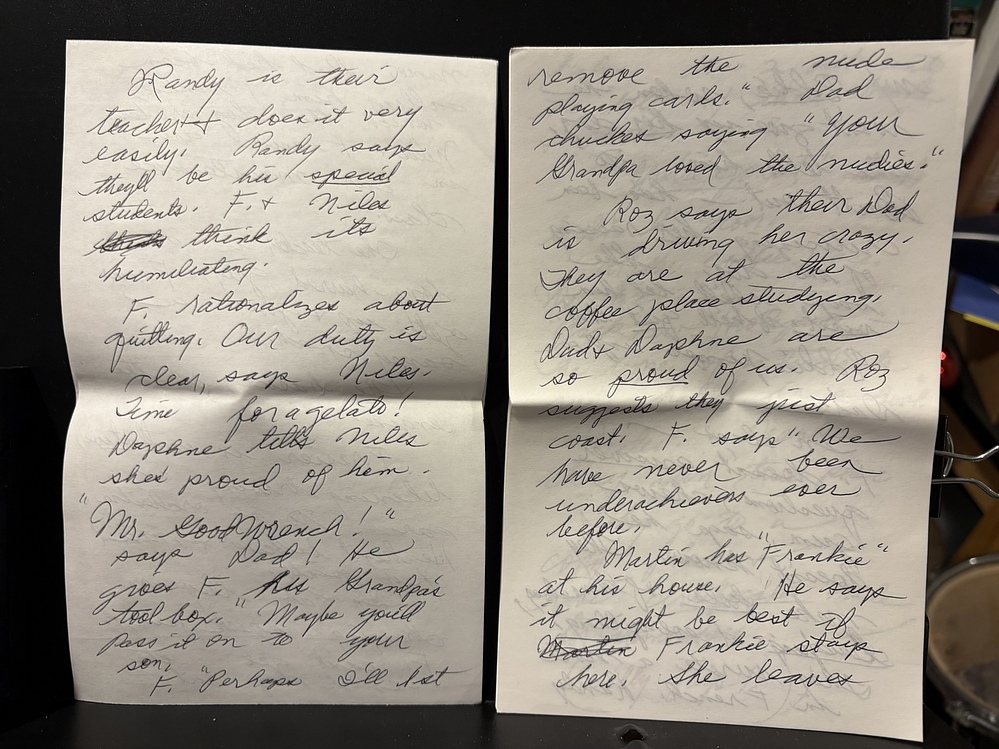 Randy is their
teacher + does it very
easily. Randy says
they'll be his special
students. F. + Niles
think its
humiliating.
F. rationalizes about
quitting. Our duty is
clear, says Niles.
Time for a gelato!
Daphne tells Niles
shes proud of him.
"Mr. GoodWrench!"
says Dad! He
gives F. his Grandpa's
tool box. "Maybe you'll
pass it on to your
son.
F. "Perhaps I'll 1st
remove the nude
playing cards." Dad
chuckes saying "Your
Grandpa loved the nudies."
Roz says their Dad
is driving her crazy.
They are at the
coffee place studying.
Dad + Daphne are
so proud of us. Roz
suggests they just
coast. F. says "We
have never been
underachievers ever
before.
Martin has "Frankie"
at his house. He says
it might be best if
Martin Frankie stays
here. She leaves